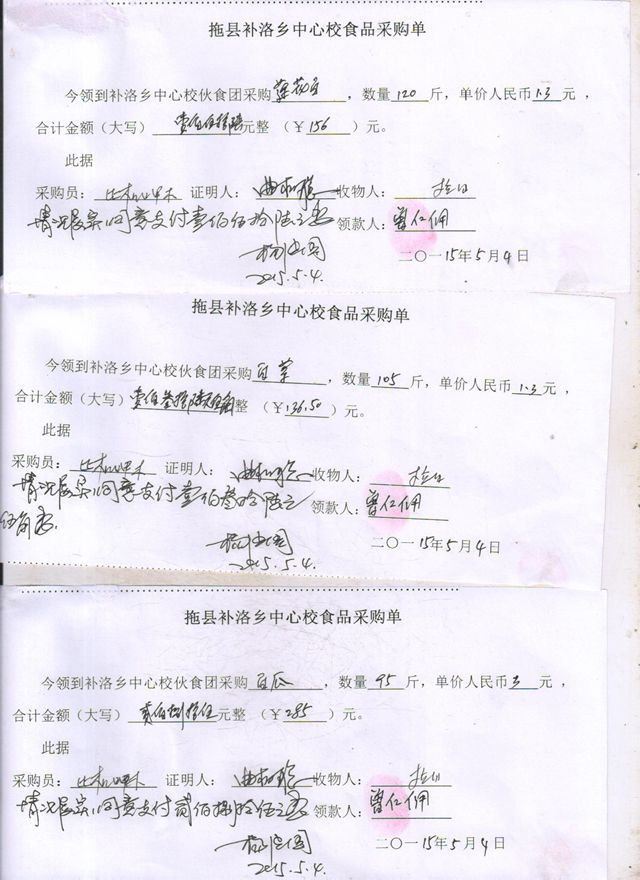 拖县补洛乡中心校食品采购单
今领到补洛乡中心校伙食团采购莲花白，数量120斤，单价人民币1.3元，
合计金额（大写）壹佰伍拾陆元整（￥156）元。
此据
采购员： 证明人： 收物人：
情况属实，同意支付壹佰伍拾陆元整 领款人：曾仁佣
二〇一15年5月4日
2015.5.4.
拖县补洛乡中心校食品采购单
今领到补洛乡中心校伙食团采购白菜，数量105斤，单价人民币1.3元，
合计金额（大写）壹佰叁拾陆元伍角整（￥136.50）元。
此据
采购员： 证明人： 收物人：
情况属实，同意支付壹佰叁拾陆元 领款人：曾仁佣
伍角整。
二〇一15年5月4日
2015.5.4.
拖县补洛乡中心校食品采购单
今领到补洛乡中心校伙食团采购白瓜，数量95斤，单价人民币3元，
合计金额（大写）贰佰捌拾伍元整（￥285）元。
此据
采购员： 证明人： 收物人：
情况属实，同意支付贰佰捌拾伍元整 领款人：曾仁佣
二〇一15年5月4日
2015.5.4.